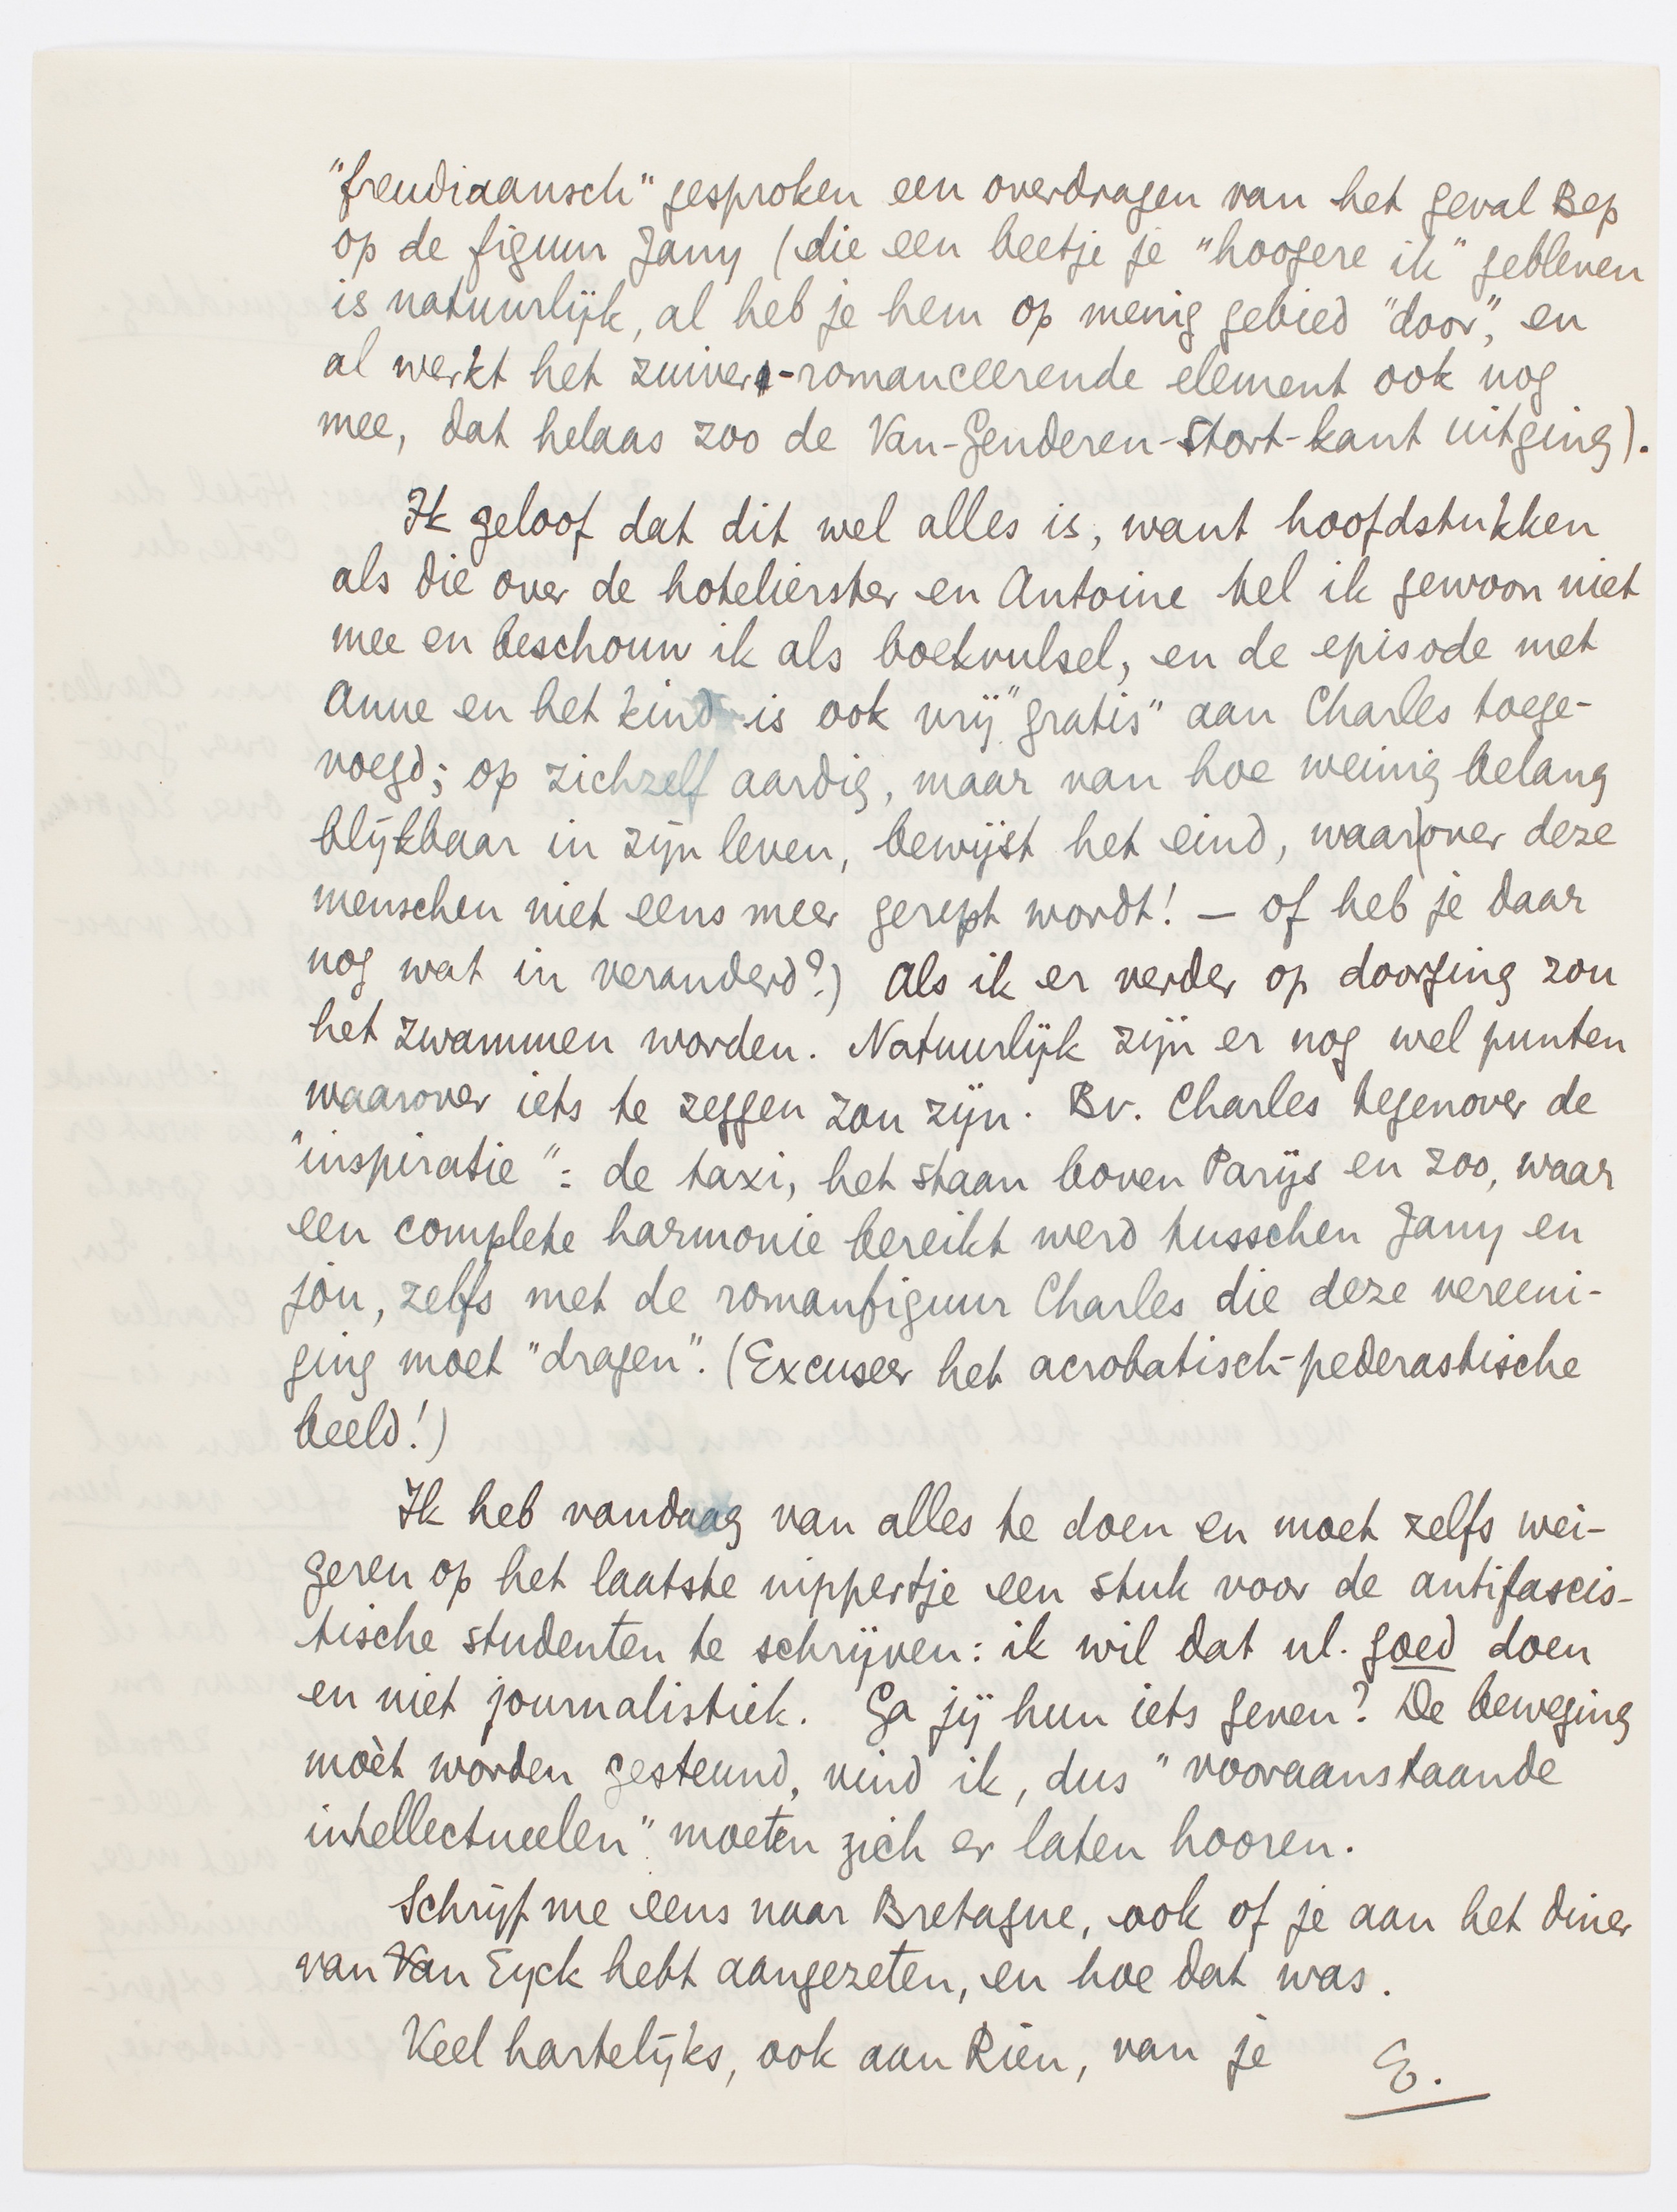 "freudiaansch" gesproken een overdragen van het geval Bep
op de figuur Jany (die een beetje je "hoogere ik" gebleven
is natuurlijk, al heb je hem op menig gebied "door", en
al werkt het zuiver-romanceerende element ook nog
mee, dat helaas zoo de Van-Genderen-Stort-kant uitging).
Ik geloof dat dit wel alles is, want hoofdstukken
als die over de hotelierster en Antoine tel ik gewoon niet
mee en beschouw ik als boekvulsel, en de episode met
Anne en het kind is ook vrij "gratis" aan Charles toege-
voegd; op zichzelf aardig, maar van hoe weinig belang
blijkbaar in zijn leven, bewijst het eind, waar(over deze
menschen niet eens meer gerept wordt! — of heb je daar
nog wat in veranderd?) Als ik er verder op doorging zou
het zwammen worden. Natuurlijk zijn er nog wel punten
waarover iets te zeggen zou zijn. Bv. Charles tegenover de
"inspiratie": de taxi, het staan boven Parijs en zoo, waar
een complete harmonie bereikt werd tusschen Jany en
jòu, zelfs met de romanfiguur Charles die deze vereeni-
ging moet "dragen". (Excuseer het acrobatisch-pederastische
beeld!)
Ik heb vandaag van alles te doen en moet zelfs wei-
geren op het laatste nippertje een stuk voor de antifascis-
tische studenten te schrijven: ik wil dat nl. goed doen
en niet journalistiek. Ga jij hun iets geven? De beweging
moèt worden gesteund, vind ik, dus "vooraanstaande
intellectueelen" moeten zich er laten hooren.
Schrijf me eens naar Bretagne, ook of je aan het diner
van Van Eyck hebt aangezeten, en hoe dat was.
Veel hartelijks, ook aan Rien, van je
E.